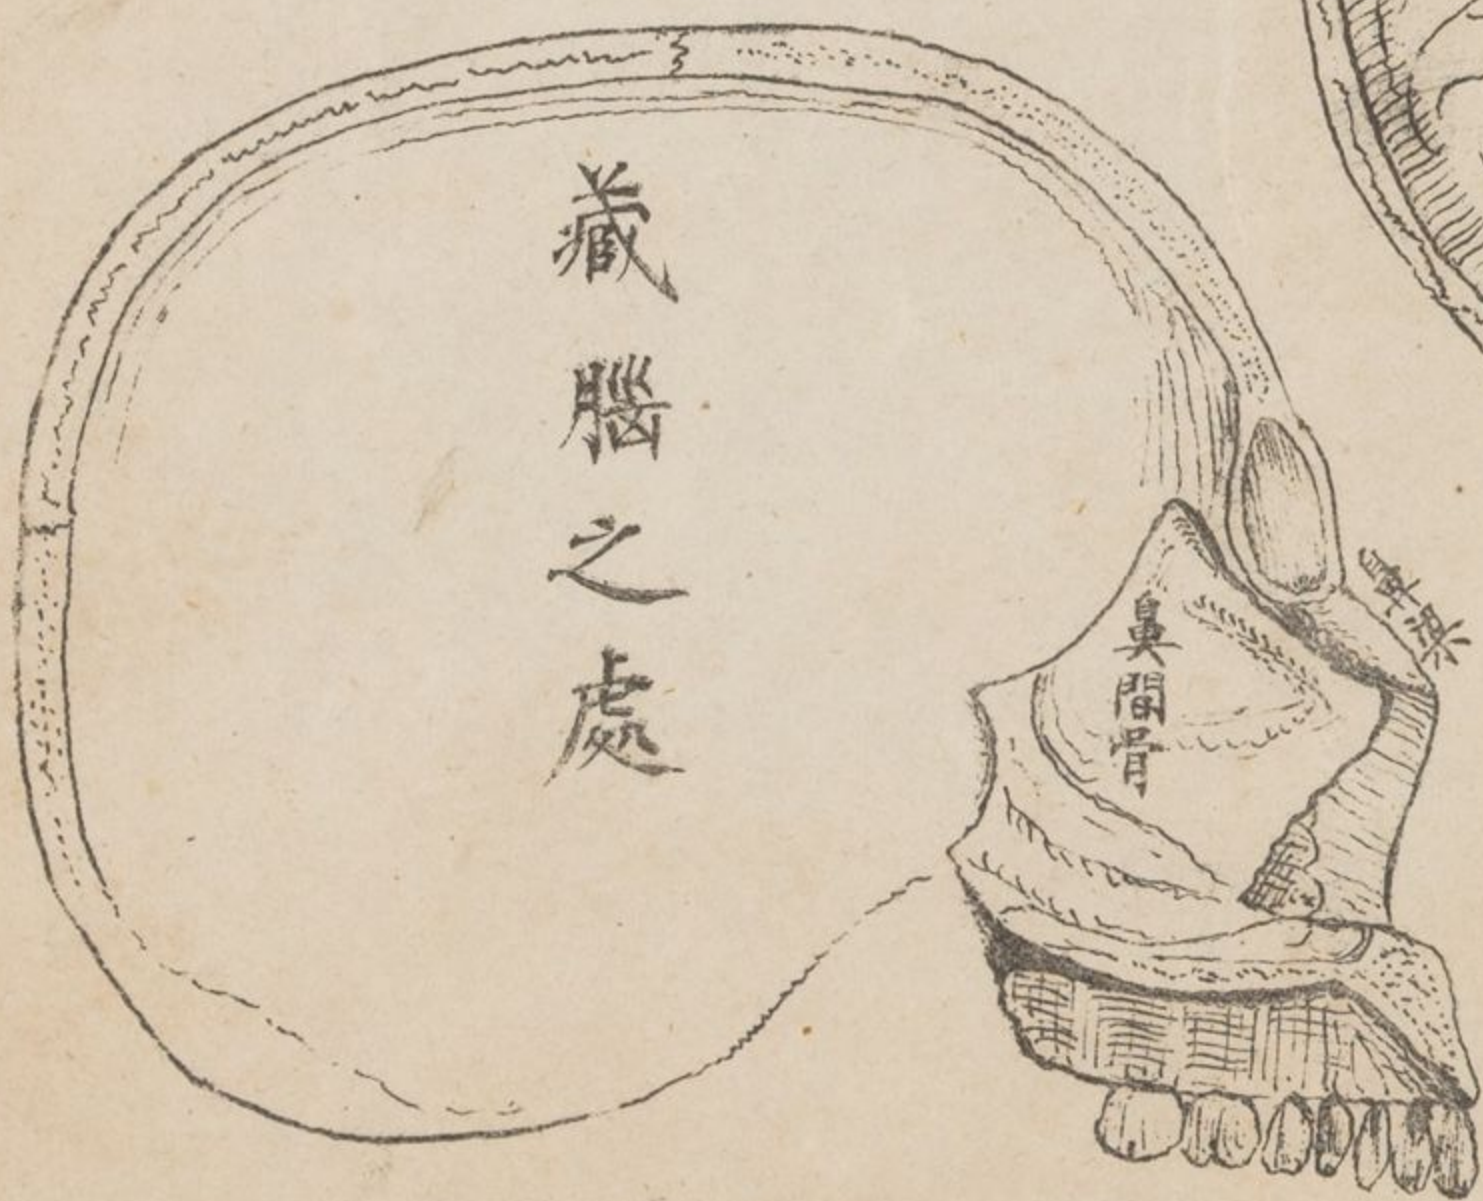 藏腦之處
鼻間骨
鼻梁